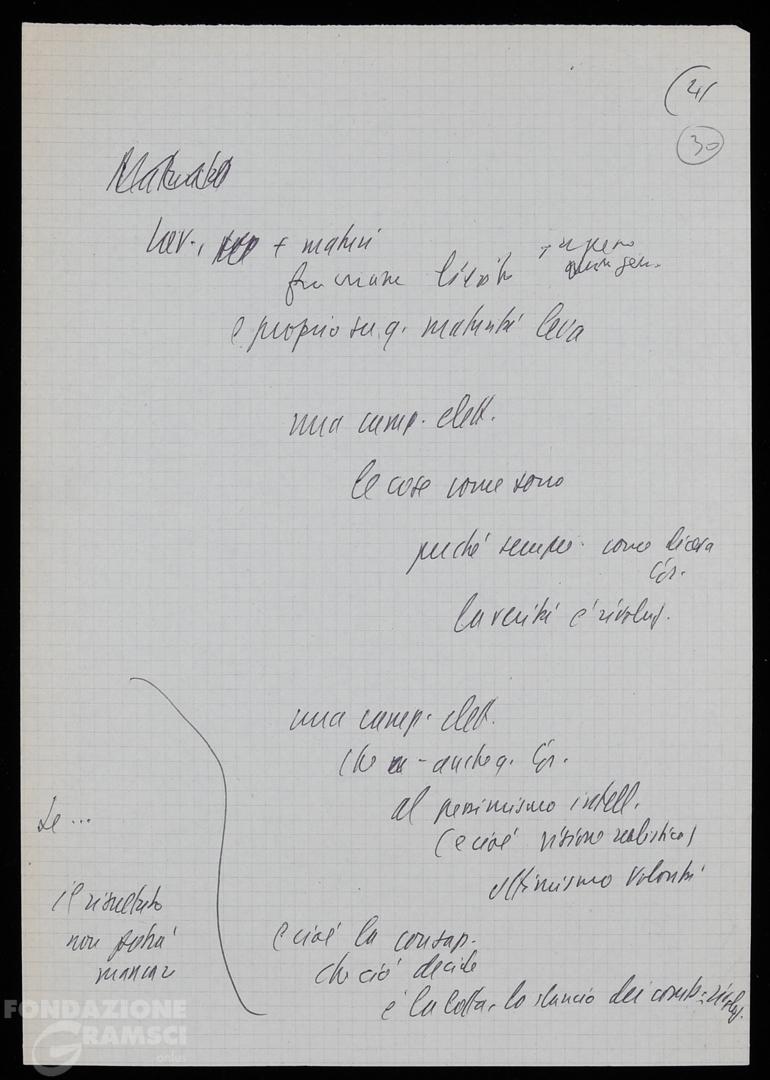 41
30
+ maturi
e proprio su q. maturità leva
una camp. elett.
le cose come sono
perché sempre come diceva
Gr.
la verità è rivoluz.
una camp. elett.
che - anche q. Gr.
al pessimismo intell.
(e cioè visione realistica)
ottimismo volontà
Se ...
il risultato
non potrà
mancare
e cioè la consap.
che ciò decide
è la lotta, lo slancio dei comb. rivoluz.
FONDAZIONE
GRAMSCI
onlus